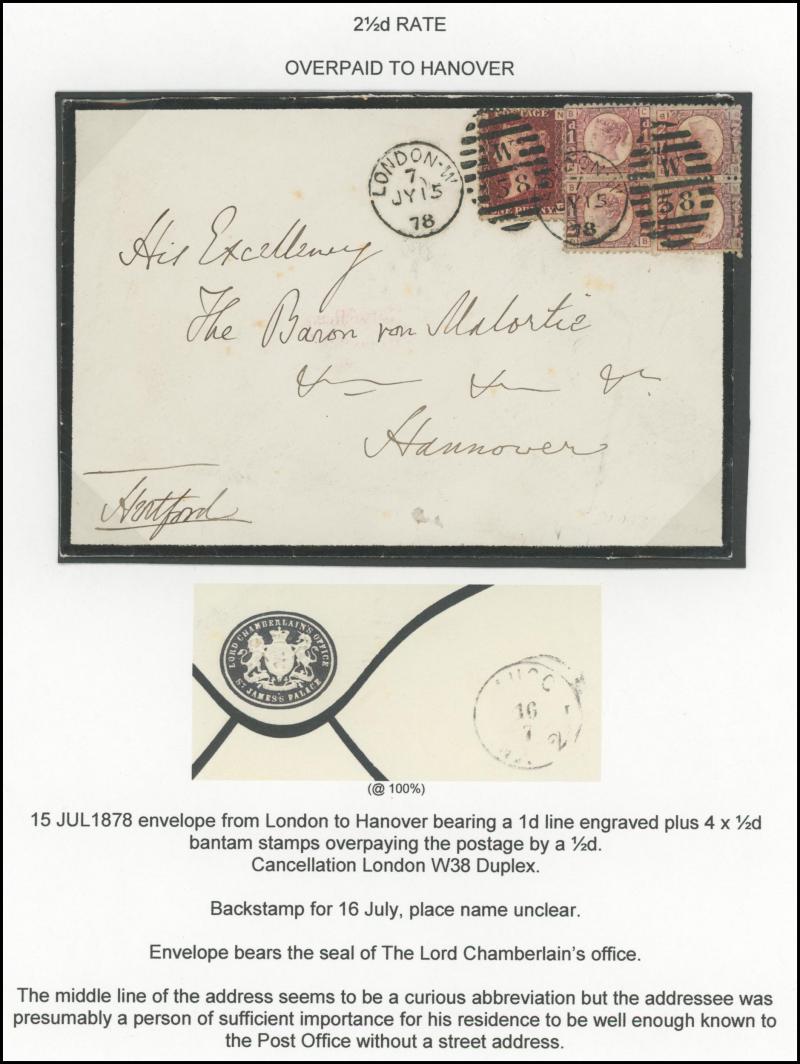 2½d RATE
OVERPAID TO HANOVER
POSTAGE
N
B C
B
LONDON-W
7
JY 15
78
W
38
JY 15
78
W
38
ONE PENNY
His Excellency
The Baron von Malortie
&c &c &c
Hannover
Hertford
LORD CHAMBERLAIN'S OFFICE
ST JAMES'S PALACE
16
7
(@ 100%)
15 JUL1878 envelope from London to Hanover bearing a 1d line engraved plus 4 x ½d
bantam stamps overpaying the postage by a ½d.
Cancellation London W38 Duplex.
Backstamp for 16 July, place name unclear.
Envelope bears the seal of The Lord Chamberlain's office.
The middle line of the address seems to be a curious abbreviation but the addressee was
presumably a person of sufficient importance for his residence to be well enough known to
the Post Office without a street address.